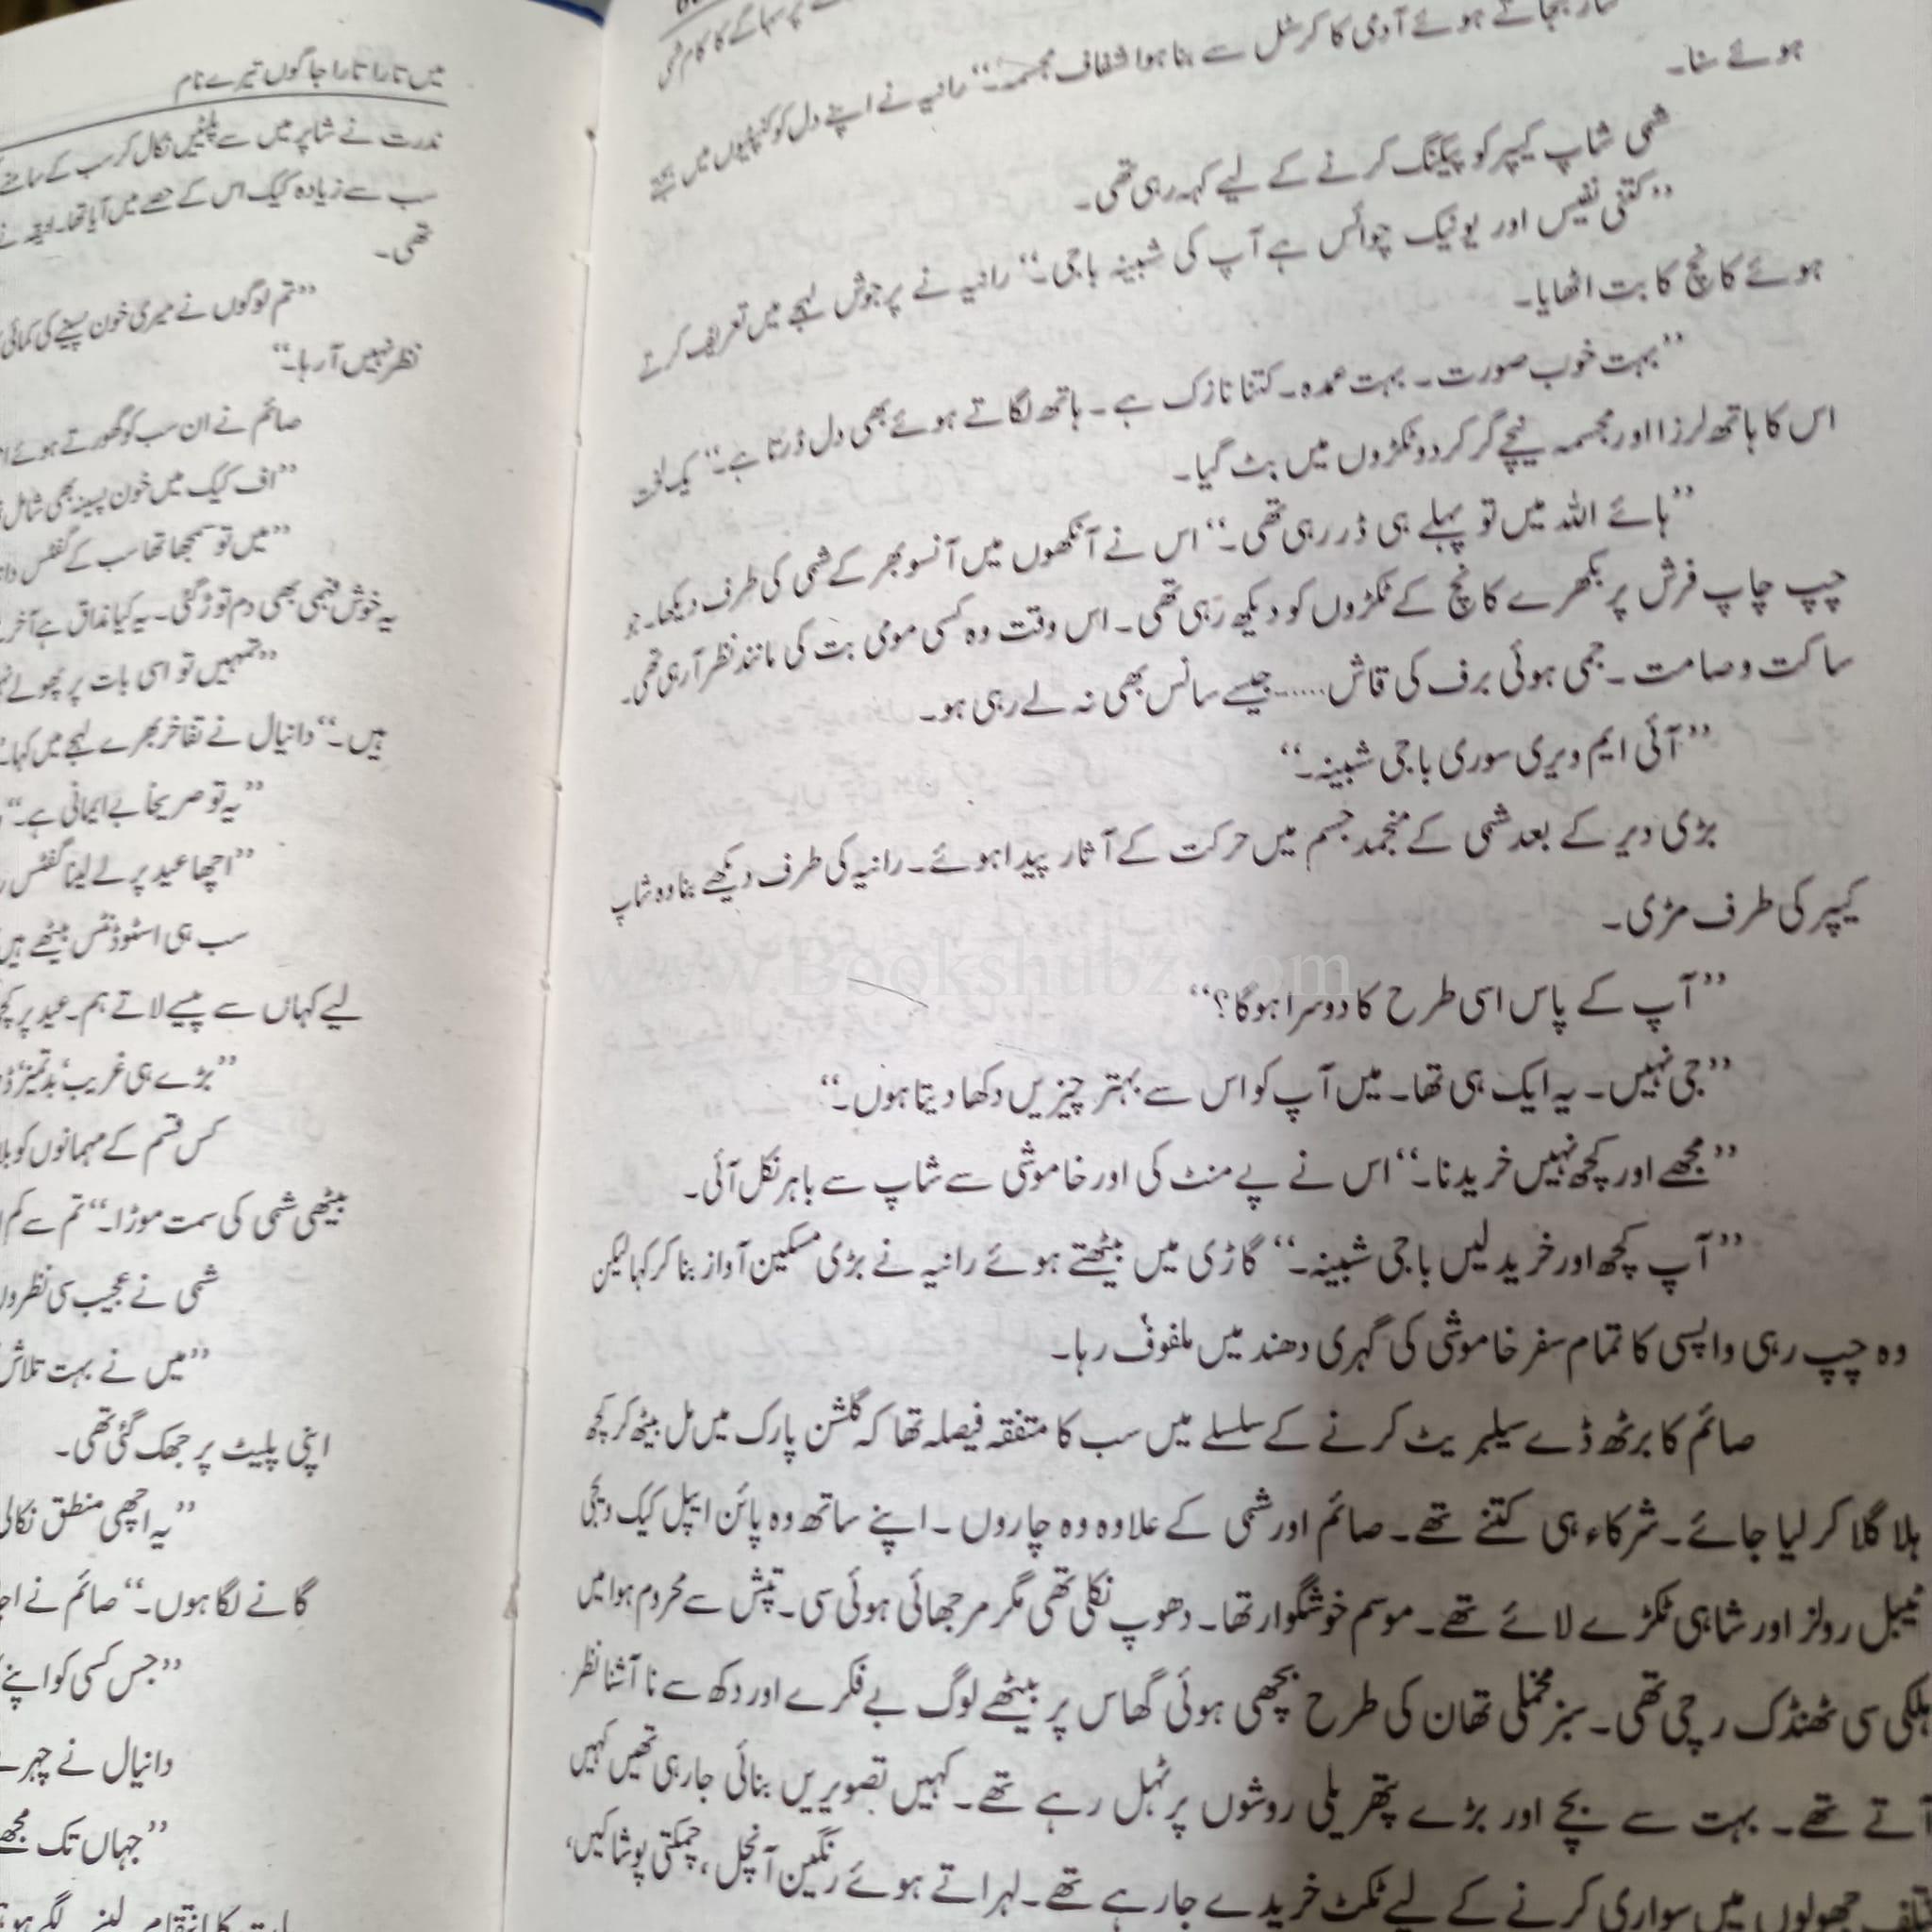 ہوئے آدمی کا کرسٹل سے بنا ہوا شفاف مجسمہ۔“ رانیہ نے اپنے دل کو کنپٹیوں میں
ہوئے سنا۔
شمی شاپ کیپر کو پیکنگ کرنے کے لیے کہہ رہی تھی۔
”کتنی نفیس اور یونیک چوائس ہے آپ کی شبینہ باجی۔“ رانیہ نے پرجوش لہجے میں تعریف کرتے
ہوئے کانچ کا بت اٹھایا۔
”بہت خوب صورت۔ بہت عمدہ۔ کتنا نازک ہے۔ ہاتھ لگاتے ہوئے بھی دل ڈرتا ہے۔“ یک لخت
اس کا ہاتھ لرزا اور مجسمہ نیچے گر کر دو ٹکڑوں میں بٹ گیا۔
”ہائے اللہ میں تو پہلے ہی ڈر رہی تھی۔“ اس نے آنکھوں میں آنسو بھر کے شمی کی طرف دیکھا۔ جو
چپ چاپ فرش پر بکھرے کانچ کے ٹکڑوں کو دیکھ رہی تھی۔ اس وقت وہ کسی مومی بت کی مانند نظر آ رہی تھی۔
ساکت و صامت۔ جمی ہوئی برف کی قاش......جیسے سانس بھی نہ لے رہی ہو۔
”آئی ایم ویری سوری باجی شبینہ۔“
بڑی دیر کے بعد شمی کے منجمد جسم میں حرکت کے آثار پیدا ہوئے۔ رانیہ کی طرف دیکھے بنا وہ شاپ
کیپر کی طرف مڑی۔
”آپ کے پاس اسی طرح کا دوسرا ہوگا؟“
”جی نہیں۔ یہ ایک ہی تھا۔ میں آپ کو اس سے بہتر چیزیں دکھا دیتا ہوں۔“
”مجھے اور کچھ نہیں خریدنا۔“ اس نے پے منٹ کی اور خاموشی سے شاپ سے باہر نکل آئی۔
”آپ کچھ اور خرید لیں باجی شبینہ۔“ گاڑی میں بیٹھتے ہوئے رانیہ نے بڑی مسکین آواز بنا کر کہا لیکن
وہ چپ رہی واپسی کا تمام سفر خاموشی کی گہری دھند میں ملفوف رہا۔
صائم کا برتھ ڈے سیلیبریٹ کرنے کے سلسلے میں سب کا متفقہ فیصلہ تھا کہ گلشن پارک میں مل بیٹھ کر کچھ
ہلا گلا کر لیا جائے۔ شرکاء ہی کتنے تھے۔ صائم اور شمی کے علاوہ وہ چاروں۔ اپنے ساتھ وہ پائن ایپل کیک ویجی
ٹیبل رولز اور شاہی ٹکڑے لائے تھے۔ موسم خوشگوار تھا۔ دھوپ نکلی تھی مگر مرجھائی ہوئی سی۔ تپش سے محروم ہوا میں
ہلکی سی ٹھنڈک رچی تھی۔ سبز مخملی تھان کی طرح بچھی ہوئی گھاس پر بیٹھے لوگ بے فکرے اور دکھ سے نا آشنا نظر
آتے تھے۔ بہت سے بچے اور بڑے پتھریلی روشوں پر ٹہل رہے تھے۔ کہیں تصویریں بنائی جا رہی تھیں کہیں
جھولوں میں سواری کرنے کے لیے ٹکٹ خریدے جا رہے تھے۔ لہراتے ہوئے رنگین آنچل، چمکتی پوشاکیں،
میں تارا تارا جاگوں تیرے نام
ندرت نے شاپر میں سے پلیٹیں نکال کر سب کے سامنے
سب سے زیادہ کیک اس کے حصے میں آیا تھا۔
تھی۔
”تم لوگوں نے میری خون پسینے کی کمائی
نظر نہیں آ رہا۔“
صائم نے ان سب کو گھورتے ہوئے
”اف کیک میں خون پسینہ بھی شامل
”میں تو سمجھا تھا سب کے گفٹس
یہ خوش فہمی بھی دم توڑ گئی۔ یہ کیا مذاق ہے آخر
”تمہیں تو اسی بات پر پھولے
ہیں۔“ دانیال نے تفاخر بھرے لہجے میں کہا
”یہ تو صریحاً بے ایمانی ہے۔“
”اچھا عید پر لے لینا گفٹس
سب ہی اسٹوڈنٹس بیٹھے ہیں
لیے کہاں سے پیسے لاتے ہم۔ عید پر
”بڑے ہی غریب، بدتمیز،
کس قسم کے مہمانوں کو
بیٹھی شمی کی سمت موڑا۔“ تم سے کم
شمی نے عجیب سی
”میں نے بہت تلاش
اپنی پلیٹ پر جھک گئی تھی۔
”یہ اچھی منطق نکالی
گانے لگا ہوں۔“ صائم نے
”جس کسی کو اپنے
دانیال نے
”جہاں تک
www.Bookshubz.com